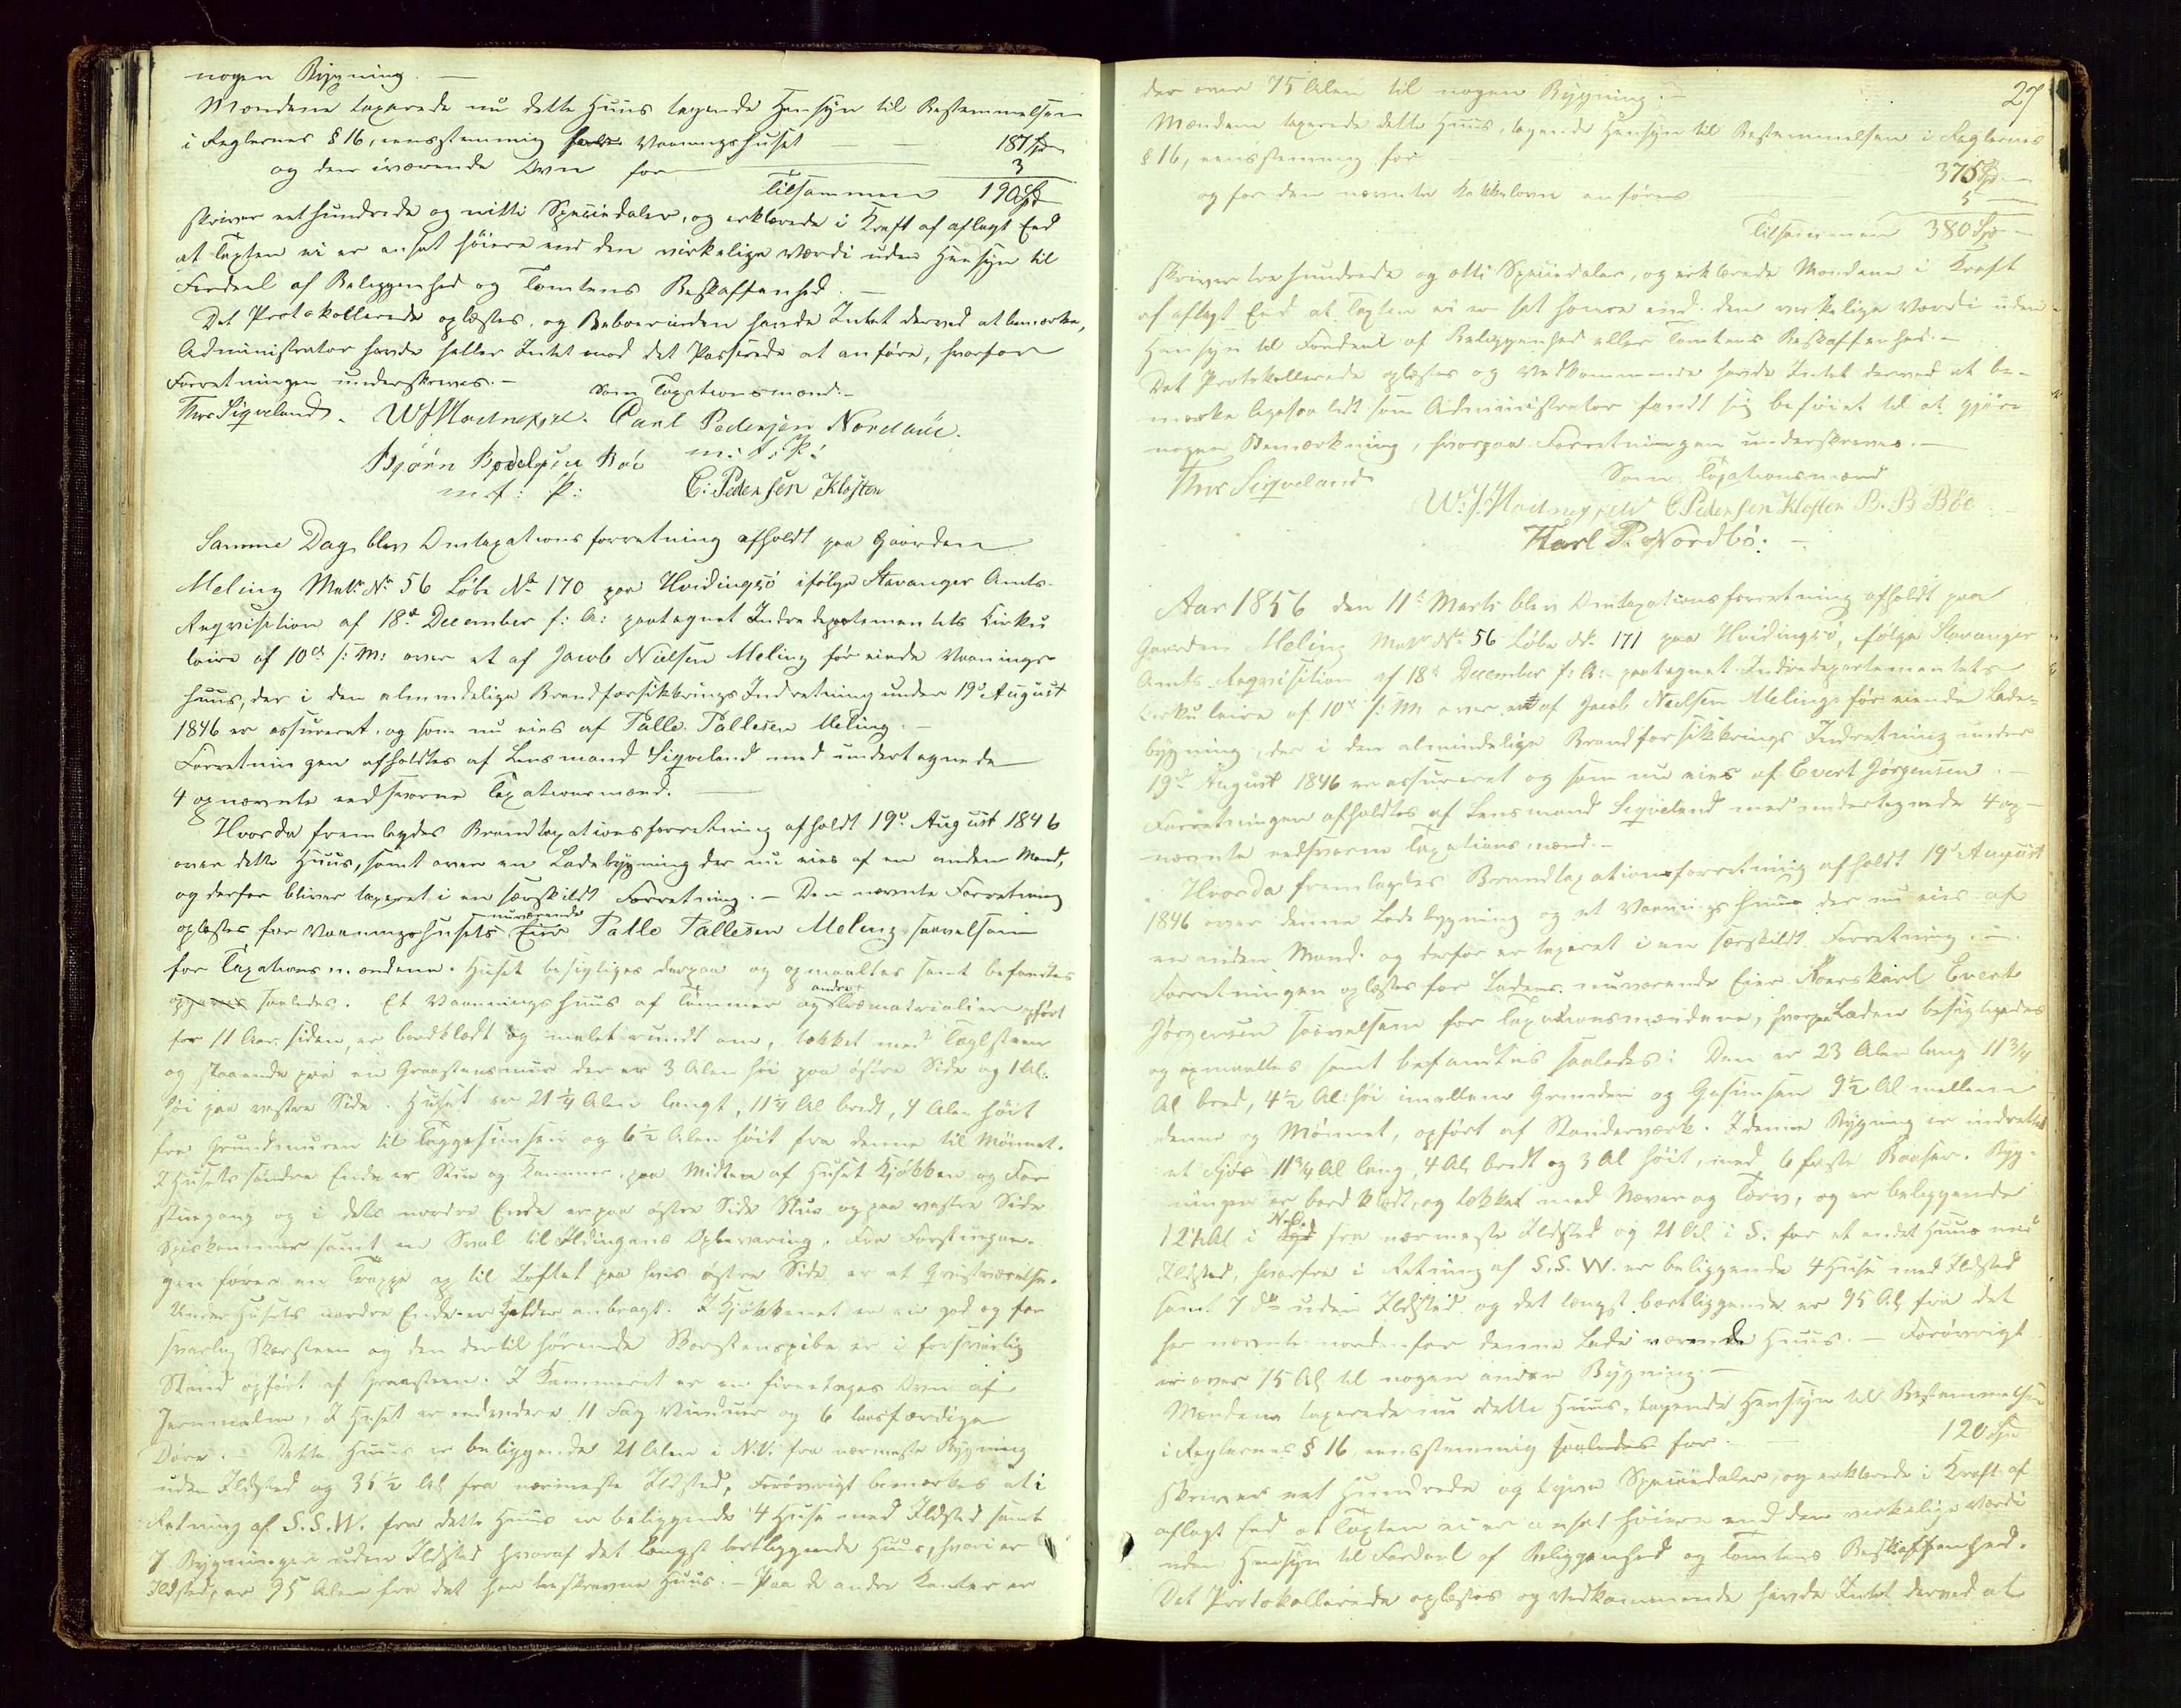 nogen Bygning. —
Mændene taxerede nu dette Huus tagende Hensyn til Bestemmelsen
i Reglernes § 16, eensstemmig for Vaaningshuset — — 187 Spd
og den iværende Ovn for — 3
Tilsammen 190 Spd
skriver eethundrede og nitti Speciedaler, og erklærede i Kraft af aflagt Eed
at Taxten ei er ansat höiere end den virkelige Værdi uden Hensyn til
Fordeel af Beliggenhed og Tomtens Beskaffenhed. —
Det Protokollerede oplæstes, og Beboerinden havde Intet derved at bemærke,
Administrator havde heller Intet mod det Passerede at anföre, hvorfor
Forretningen underskreves. — Som Taxationsmænd. —
Thrs Siqveland. Carl Pedersen Nordbüe.
Björn Böe m. f. P:
m. f: P: C: Pedersen Kloster
Samme Dag blev Omtaxationsforretning afholdt paa Gaarden
Meling Matr. No 56 Löbe No 170 paa Hvidingsö ifölge Stavanger Amts
Reqvisition af 18de December f: A: paategnet Indredepartementets Cirku
laire af 10de s: M: over et af Jacob Nielsen Meling för eiende Vaanings
huus, der i den almindelige Brandforsikkrings Indretning under 19de August
1846 er assureret, og som nu eies af Talle Tallesen Meling. —
Forretningen afholdtes af Lensmand Siqveland med undertegnede
4 opnævnte eedsvorne Taxationsmænd. —
Hvorda fremlagdes Brandtaxationsforretning afholdt 19de August 1846
over dette Huus, samt over en Ladebygning der nu eies af en anden Mand,
og derfor bliver taxeret i en særskildt Forretning. — Den nævnte Forretning
nuværende
oplæstes for Vaaningshusets Eier Talle Tallesen Meling saavelsom
for Taxationsmændene. Huset besigtiges derpaa og opmaaltes samt befandtes
andre
saaledes. Et Vaanningshuus af Tömmer og Træmaterialier opfört
for 11 Aar siden, er bordklædt og malet rundt om, tækket med Taglsteen
og staaende paa en Graasteensmuur der er 3 Alen höi paa östre Side og 1 Al:
höi paa vestre Side. Huset er 21 1/4 Alen langt, 11 1/4 Al bredt, 4 Alen höit
fra Grundmuren til Taggesimsen og 6 1/2 Alen höit fra denne til Mönnet.
I Husets söndre Ende er Stue og Kammer, paa Midten af Huset Kjökken og For
stuegang og i dets nordre Ende er paa östre Side Stue og paa vestre Side
Spiskammer samt en Sval til Ildingens Opbevaring. Fra Forstuegan-
gen förer en Trappe op til Loftet paa hvis östre Side er et Qvistværelse.
Under Husets nordre Ende er Kjelder anbragt. I Kjökkenet er en god og for
svarlig Skorsteen og den dertil hörende Skorsteenspibe er i forsvarlig
Stand opfört af Graasteen. I Kammeret er en fireetages Ovn af
Jernmalm, I Huset er endvidere 11 Fag Vinduer og 6 laasfærdige
Döre. — Dette Huus er beliggende 21 Alen i N.V. fra nærmeste Bygning
uden Ildsted og 35 1/2 Al fra nærmeste Ildsted, Forövrigt bemærkes at i
Retning af S.S.W. fra dette Huus er beliggende 4 Huse med Ildsted samt
7 Bygninger uden Ildsted hvoraf det længst bortliggende Huus, hvori er
Ildsted, er 95 Alen fra det her beskrevne Huus. — Paa de andre Kanter er
27
der over 75 Alen til nogen Bygning. —
Mændene taxerede dette Huus, tagende Hensyn til Bestemmelsen i Reglernes
§ 16, eensstemmig for 375 Spd —
og for den nævnte Kakkelovn anföres 5 —
Tilsammen 380 Spd —
skriver trehundrede og otti Speciedaler, og erklærede Mændene i Kraft
af aflagt Eed at Taxten ei er sat höiere end den virkelige Værdi uden
Hensyn til Fordeel af Beliggenhed eller Tomtens Beskaffenhed. —
Det Protokollerede oplæstes og Vedkommende havde Intet derved at be-
mærke ligesaalidt som Administrator fandt sig beföiet til at gjöre
nogen Bemærkning, hvorpaa Forretningen underskreves. —
Thrs Siqveland Som Taxationsmænd
C Pedersen Kloster B. B Böe
Karl P. Nordbö: —
Aar 1856 den 11te Marts blev Omtaxationsforretning afholdt paa
Gaarden Meling Matr No 56 Löbe No 171 paa Hvidingsö, fölge Stavanger
Amts Reqvisition af 18de December f: A: paategnet Indredepartementets
Cirkulaire af 10de s: M: over en af Jacob Nielsen Meling för eiende Lade-
bygning, der i den almindelige Brandforsikkrings Indretning under
19de August 1846 er assureret og som nu eies af Evert Jörgensen. —
Forretningen afholdtes af Lensmand Siqveland med undertegnede 4 op-
nævnte eedsvorne Taxationsmænd. —
Hvorda fremlagdes Brandtaxationsforretning afholdt 19de August
1846 over denne Ladebygning og et Vaaningshuus der nu eies af
en anden Mand og derfor er taxeret i en særskildt Forretning. —
Forretningen oplæstes for Ladens nuværende Eier Evert
Jörgensen saavelsom for Taxationsmændene, hvorpaa Laden besigtigedes
og opmaaltes samt befandtes saaledes: Den er 23 Alen lang 11 3/4
Al bred, 4 1/2 Al: höi imellem Grunden og Gesimsen 9 1/2 Al mellem
denne og Mönnet, opfört af Standerværk. I denne Bygning er indrettet
et Fjös 11 3/4 Al lang, 4 Al: bredt og 3 Al höit, med 6 faste Baaser. Byg-
ningen er bordklædt, og tækket med Næver og Törv, og er beliggende
N.O.
12 1/2 Al i fra nærmeste Ildsted og 21 Al i S. for et andet Huus med
Ildsted, hvorfra i Retning af S.S.W. er beliggende 4 Huse med Ildsted
samt 7 do uden Ildsted og det længst bortliggende er 95 Al: fra det
her nævnte nordenfor denne Lade værende Huus. — Forövrigt
er over 75 Al: til nogen anden Bygning. —
Mændene taxerede nu dette Huus, tagende Hensyn til Bestemmelsen
i Reglernes § 16, eensstemmig saaledes for. — 120 Spd
skriver eet Hundrede og tyve Speciedaler, og erklærede i Kraft af
aflagt Eed at Taxten ei er ansat höiere end den virkelige Værdi
uden Hensyn til Fordeel af Beliggenhed og Tomtens Beskaffenhed.
Det Protokollerede oplæstes og Vedkommende havde Intet derved at